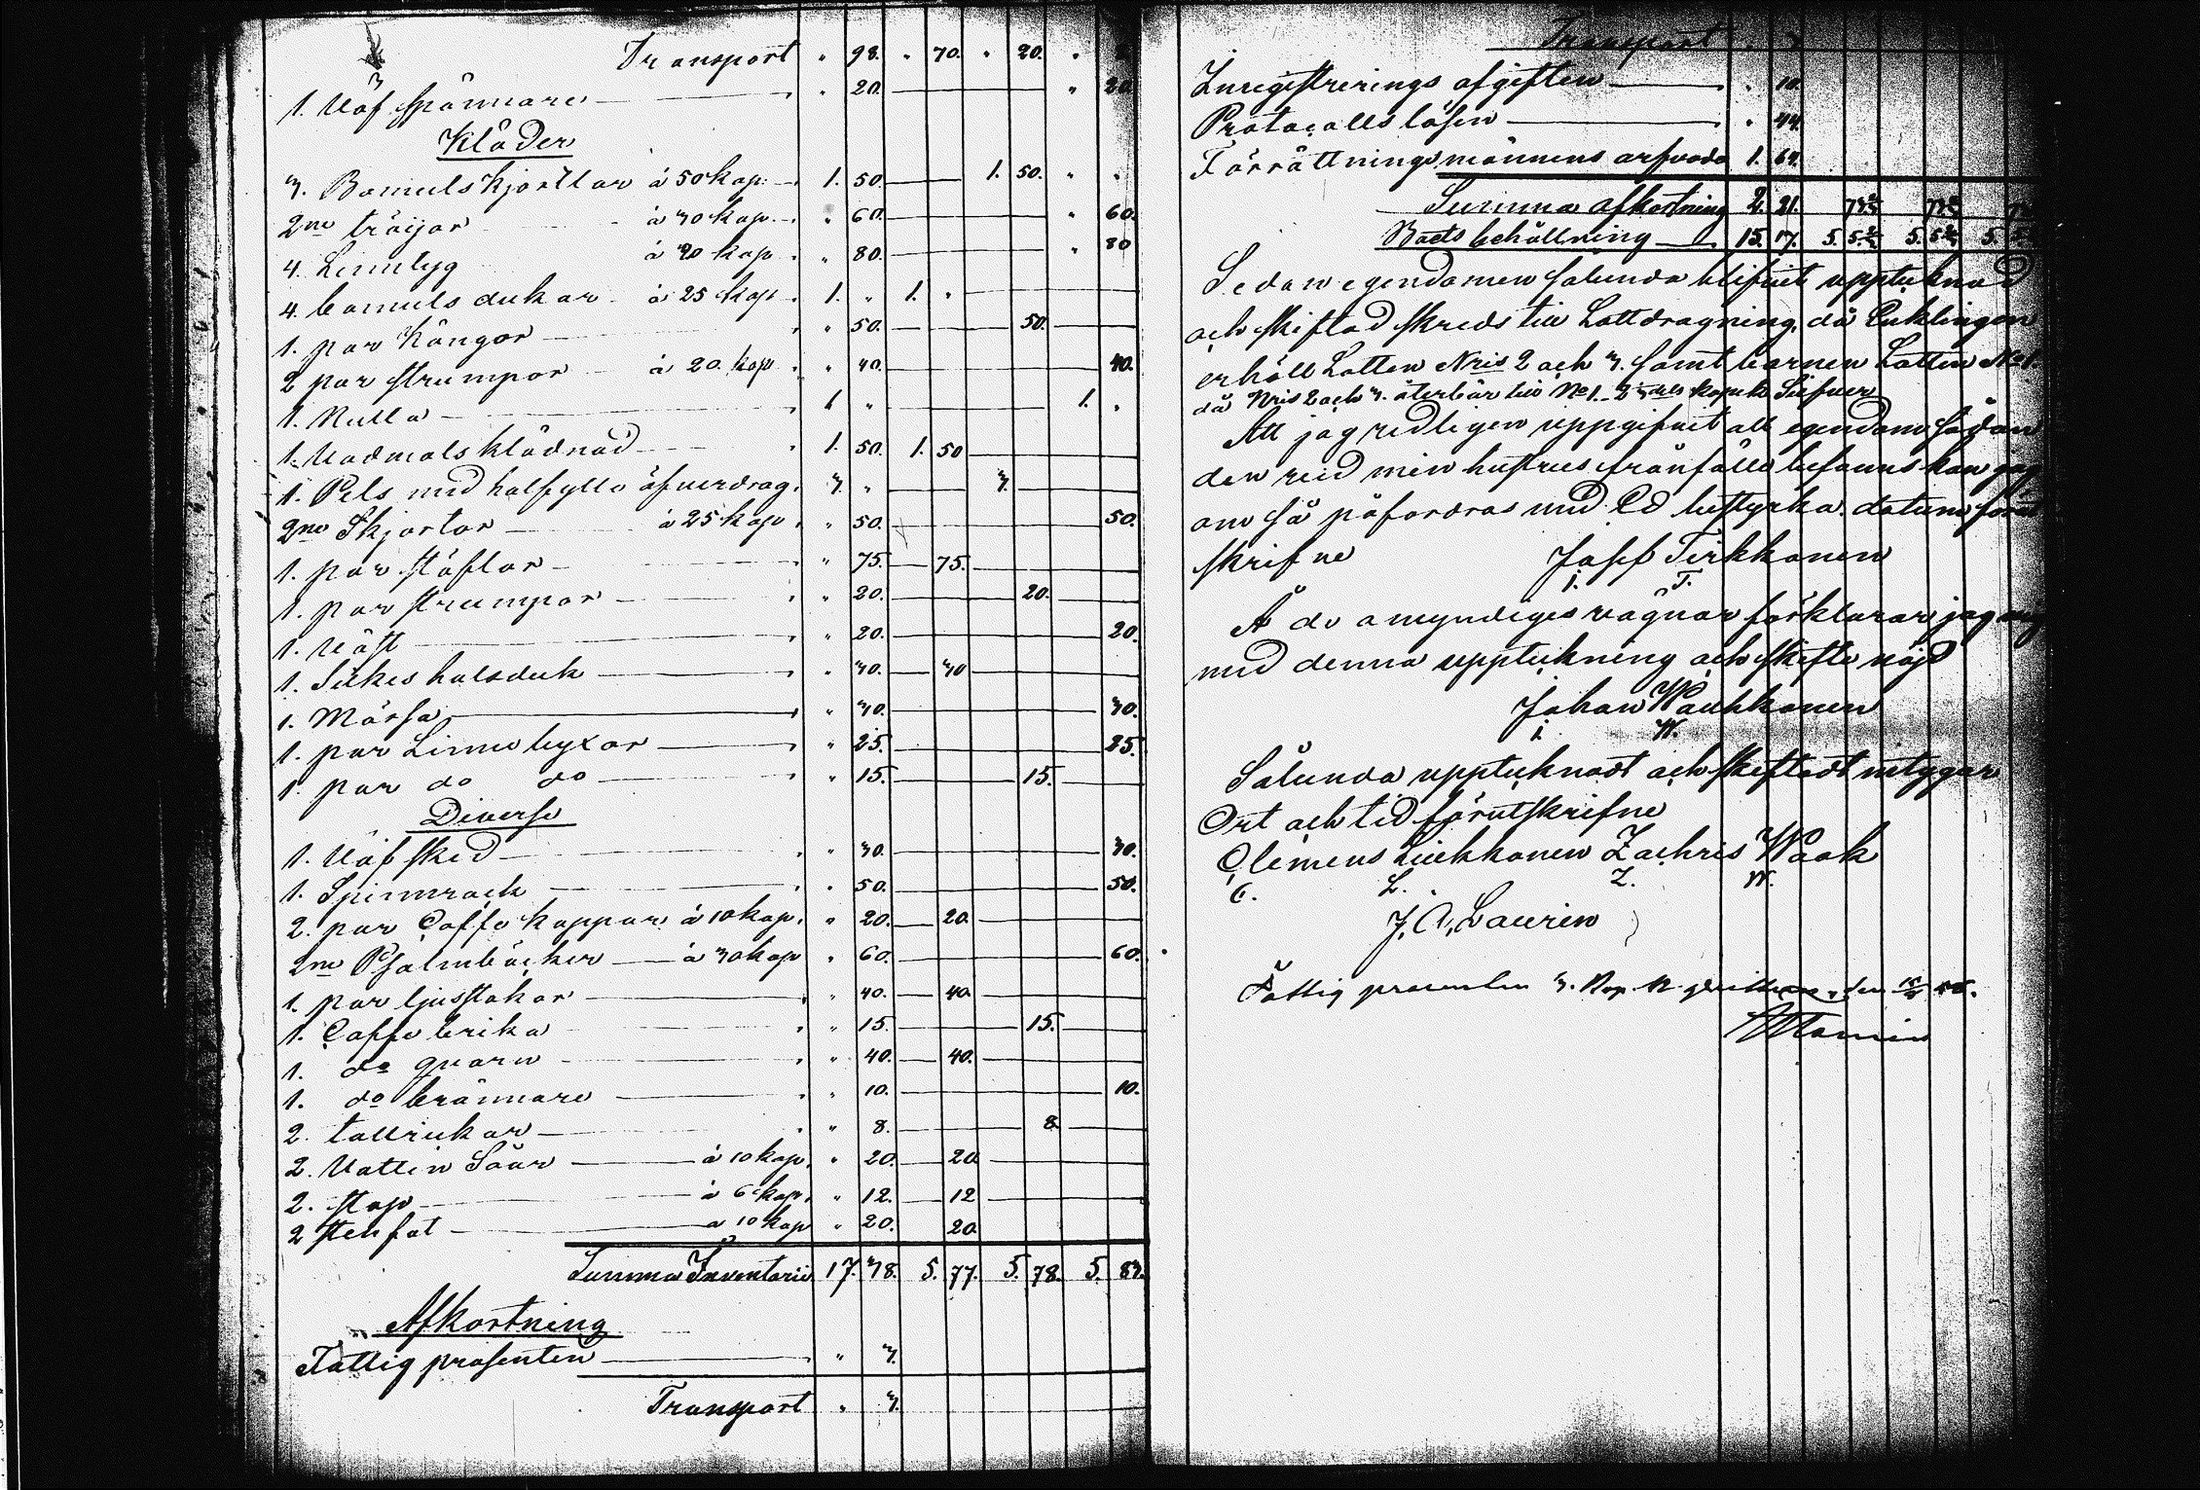 Transport " 98. " 70. " 20. "
1. Väf spännare " 20. " 20
Kläder
3. Bomuls kjortlar à 50 kop. 1. 50. 1. 50. " "
2ne tröijor à 30 kop. " 60. " 60.
4. Linntyg à 20 kop " 80. " 80
4. bomuls dukar à 25 kop. 1. " 1. "
1. par Kängor " 50. 50.
2 par strumpor à 20. kop " 40. 40.
1. Rulla 1 " 1. "
1. Vadmals klädnad 1. 50. 1. 50
1. Pels med halfylle öfverdrag. 3. " 3.
2ne Skjortor à 25 kop " 50. 50.
1. par stöflor " 75. 75.
1. par strumpor " 20. 20.
1. Väst " 20. 20.
1. Silkes halsduk " 30. 30
1. Mössa " 30. 30.
1. par Linne byxor " 25. 25.
1. par do do " 15. 15.
Diverse
1. Väfsked " 30. 30.
1. Spinnrock " 50. 50.
2. par Caffe koppar à 10 kop. " 20. 20.
2ne Psalmböcker à 30 kop " 60. 60.
1. par ljusstakar " 40. 40.
1. Caffe brika " 15. 15.
1. do quarn " 40. 40.
1. do brännare " 10. 10.
2. tallrickar " 8. 8.
2. Vatten Såar à 10 kop. " 20. 20
2. stop à 6 kop. " 12. 12
2 stenfat à 10 kop " 20. 20
Summa Inventarii 17. 38. 5. 77. 5. 78. 5. 83.
Afkortning
Fattig prosenten " 3.
Transport " 3.
Transport " 3
Inregistrerings afgiften " 10.
Protocolls lösen " 44.
Förrättningsmännens arfvode 1. 64.
Summa afkortning 2. 21.
Boets behållning 15. 17. 5. 5. 5.
Sedan egendomen sålunda blifvit upptecknad
och skiftad skreds till Lottdragning, då Enklingen
erhöll Lotten Nris 2 och 3. samt barnen Lotten No 1.
då Nris 2 och 3. återbär till No 1. kopek Silfver
Att jag redligen uppgifvit all egendom sådan
den vid min hustrus frånfälle befanns kan jag
om så påfordras med Ed bestyrka. datum förut
skrifne Josef Tirkkonen
J. T.
Å de omyndiges vägnar förklarar jag mig
med denna uppteckning och skifte nöjd
Johan Wäihkonen
J. W.
Sålunda upptecknadt och skiftadt intygar
Ort och tid förutskrifne
Clemens Luckkonen Zachris Waak
C. L. Z. W.
J. A. Laurin
Fattig procenten 3. Kop. den